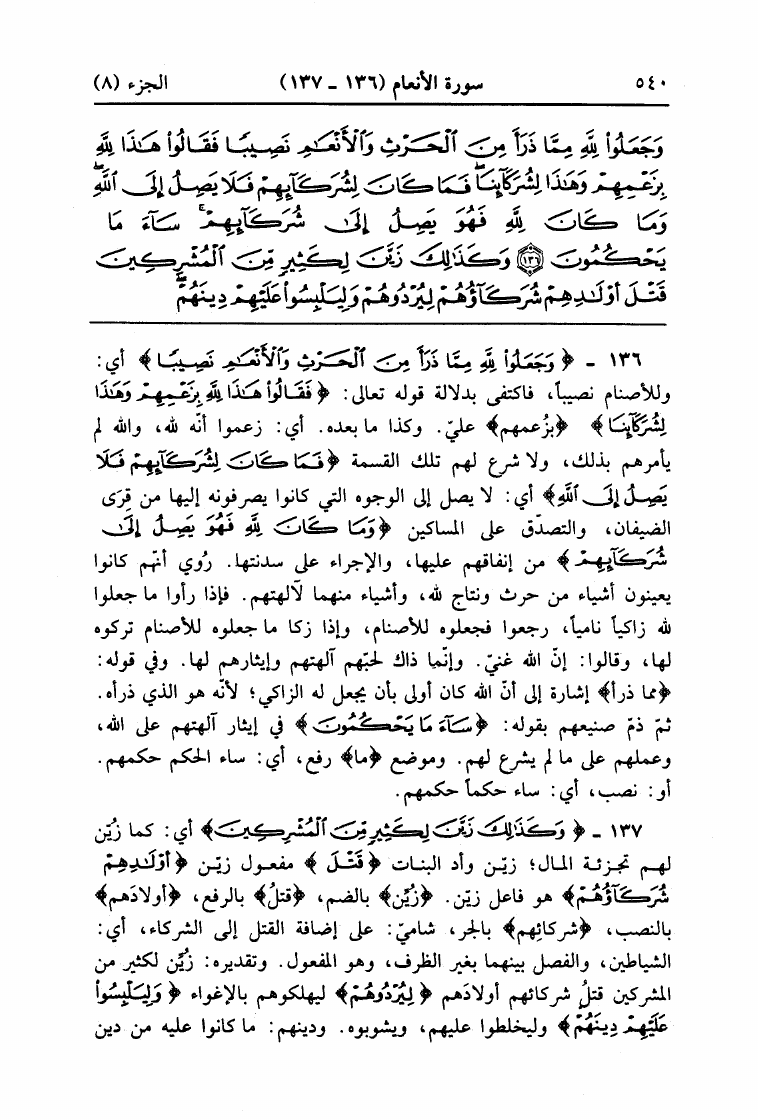 ٥٤٠ سورة الأنعام (١٣٦ ـ ١٣٧) الجزء (٨)
وَجَعَلُوا۟ لِلَّهِ مِمَّا ذَرَأَ مِنَ ٱلْحَرْثِ وَٱلْأَنْعَـٰمِ نَصِيبًا فَقَالُوا۟ هَـٰذَا لِلَّهِ
بِزَعْمِهِمْ وَهَـٰذَا لِشُرَكَآئِنَا ۖ فَمَا كَانَ لِشُرَكَآئِهِمْ فَلَا يَصِلُ إِلَى ٱللَّهِ ۖ
وَمَا كَانَ لِلَّهِ فَهُوَ يَصِلُ إِلَىٰ شُرَكَآئِهِمْ ۗ سَآءَ مَا
يَحْكُمُونَ ﴿١٣٦﴾ وَكَذَٰلِكَ زَيَّنَ لِكَثِيرٍ مِّنَ ٱلْمُشْرِكِينَ
قَتْلَ أَوْلَـٰدِهِمْ شُرَكَآؤُهُمْ لِيُرْدُوهُمْ وَلِيَلْبِسُوا۟ عَلَيْهِمْ دِينَهُمْ ۖ
١٣٦ ـ ﴿وَجَعَلُوا۟ لِلَّهِ مِمَّا ذَرَأَ مِنَ ٱلْحَرْثِ وَٱلْأَنْعَـٰمِ نَصِيبًا﴾ أي:
وللأصنام نصيباً، فاكتفى بدلالة قوله تعالى: ﴿فَقَالُوا۟ هَـٰذَا لِلَّهِ بِزَعْمِهِمْ وَهَـٰذَا
لِشُرَكَآئِنَا﴾ ﴿بزُعمهم﴾ عليّ. وكذا ما بعده. أي: زعموا أنّه لله، والله لم
يأمرهم بذلك، ولا شرع لهم تلك القسمة ﴿فَمَا كَانَ لِشُرَكَآئِهِمْ فَلَا
يَصِلُ إِلَى ٱللَّهِ﴾ أي: لا يصل إلى الوجوه التي كانوا يصرفونه إليها من قِرَى
الضيفان، والتصدّق على المساكين ﴿وَمَا كَانَ لِلَّهِ فَهُوَ يَصِلُ إِلَىٰ
شُرَكَآئِهِمْ﴾ من إنفاقهم عليها، والإجراء على سدنتها. رُوي أنّهم كانوا
يعينون أشياء من حرث ونتاج لله، وأشياء منهما لآلهتهم. فإذا رأوا ما جعلوا
لله زاكياً نامياً، رجعوا فجعلوه للأصنام، وإذا زكا ما جعلوه للأصنام تركوه
لها، وقالوا: إنّ الله غنيّ. وإنّما ذاك لحبّهم آلهتهم وإيثارهم لها. وفي قوله:
﴿مما ذرأ﴾ إشارة إلى أنّ الله كان أولى بأن يجعل له الزاكي؛ لأنّه هو الذي ذرأه.
ثمّ ذمّ صنيعهم بقوله: ﴿سَآءَ مَا يَحْكُمُونَ﴾ في إيثار آلهتهم على الله،
وعملهم على ما لم يشرع لهم. وموضع ﴿ما﴾ رفع، أي: ساء الحكم حكمهم.
أو: نصب، أي: ساء حكماً حكمهم.
١٣٧ ـ ﴿وَكَذَٰلِكَ زَيَّنَ لِكَثِيرٍ مِّنَ ٱلْمُشْرِكِينَ﴾ أي: كما زُيّن
لهم تجزئة المال؛ زيّن وأد البنات ﴿قَتْلَ﴾ مفعول زيّن ﴿أَوْلَـٰدِهِمْ
شُرَكَآؤُهُمْ﴾ هو فاعل زيّن. ﴿زُيّن﴾ بالضم، ﴿قتلُ﴾ بالرفع، ﴿أولادَهم﴾
بالنصب، ﴿شركائِهم﴾ بالجر، شاميّ: على إضافة القتل إلى الشركاء، أي:
الشياطين، والفصل بينهما بغير الظرف، وهو المفعول. وتقديره: زُيّن لكثير من
المشركين قتلُ شركائهم أولادَهم ﴿لِيُرْدُوهُمْ﴾ ليهلكوهم بالإغواء ﴿وَلِيَلْبِسُوا۟
عَلَيْهِمْ دِينَهُمْ﴾ وليخلطوا عليهم، ويشوبوه. ودينهم: ما كانوا عليه من دين